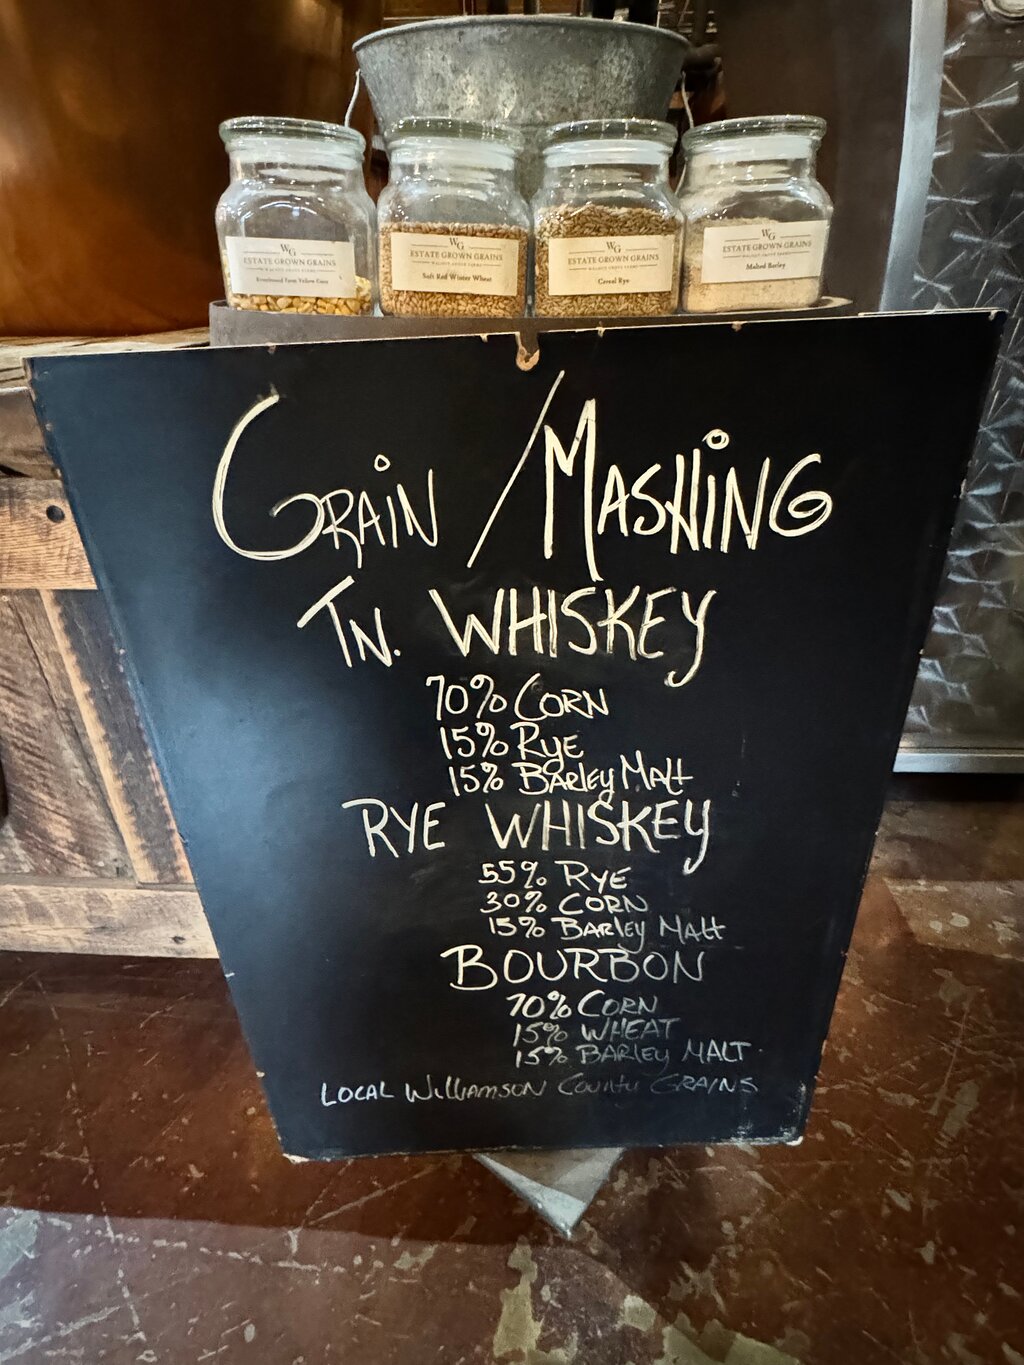 WG
ESTATE GROWN GRAINS
WALNUT GROVE FARMS
Farm Yellow Corn
WG
ESTATE GROWN GRAINS
WALNUT GROVE FARMS
Soft Red Winter Wheat
WG
ESTATE GROWN GRAINS
WALNUT GROVE FARMS
Cereal Rye
WG
ESTATE GROWN GRAINS
WALNUT GROVE FARMS
Malted Barley
GRAIN / MASHING
TN. WHISKEY
70% CORN
15% RyE
15% BARLEY MALT
RYE WHISKEY
55% RYE
30% CORN
15% BARLEY MALT
BOURBON
70% CORN
15% WHEAT
15% BARLEY MALT.
LOCAL WILLIAMSON COUNTY GRAINS